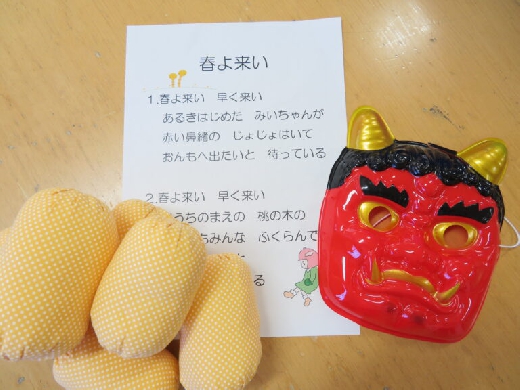 春よ来い
1.春よ来い 早く来い
あるきはじめた みいちゃんが
赤い鼻緒の じょじょはいて
おんもへ出たいと 待っている
2.春よ来い 早く来い
うちのまえの 桃の木の
みんな ふくらんで
る